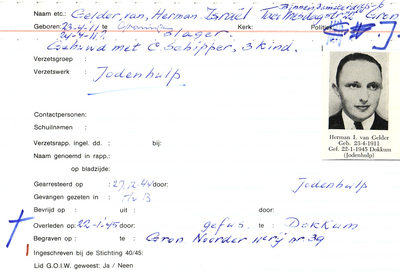 Binnendamsterdiep
Naam etc.: Gelder, van, Herman Israël Gron
Geboren: 23-4-11 te Groningen Kerk: Politiek J.
24-4-11? Slager.
Gehuwd met C. Schipper, 3 kind.
Verzetsgroep :
Verzetswerk : Jodenhulp
Contactpersonen:
Schuilnamen :
Verzetsrapp. ingel. dd. : bij:
Naam genoemd in rapp.:
op bladzijde:
Herman I. van Gelder
Geb. 23-4-1911
Gef. 22-1-1945 Dokkum
(Jodenhulp)
Gearresteerd op : 27.12.44 door: Jodenhulp
Gevangen gezeten in : HvB
Bevrijd op : uit : door:
Overleden op: 22-1-45 door: gefus. te : Dokkum
Begraven op : te : Gron Noorder nr 39
Ingeschreven bij de Stichting 40/45:
Lid G.O.I.W. geweest: Ja / Neen